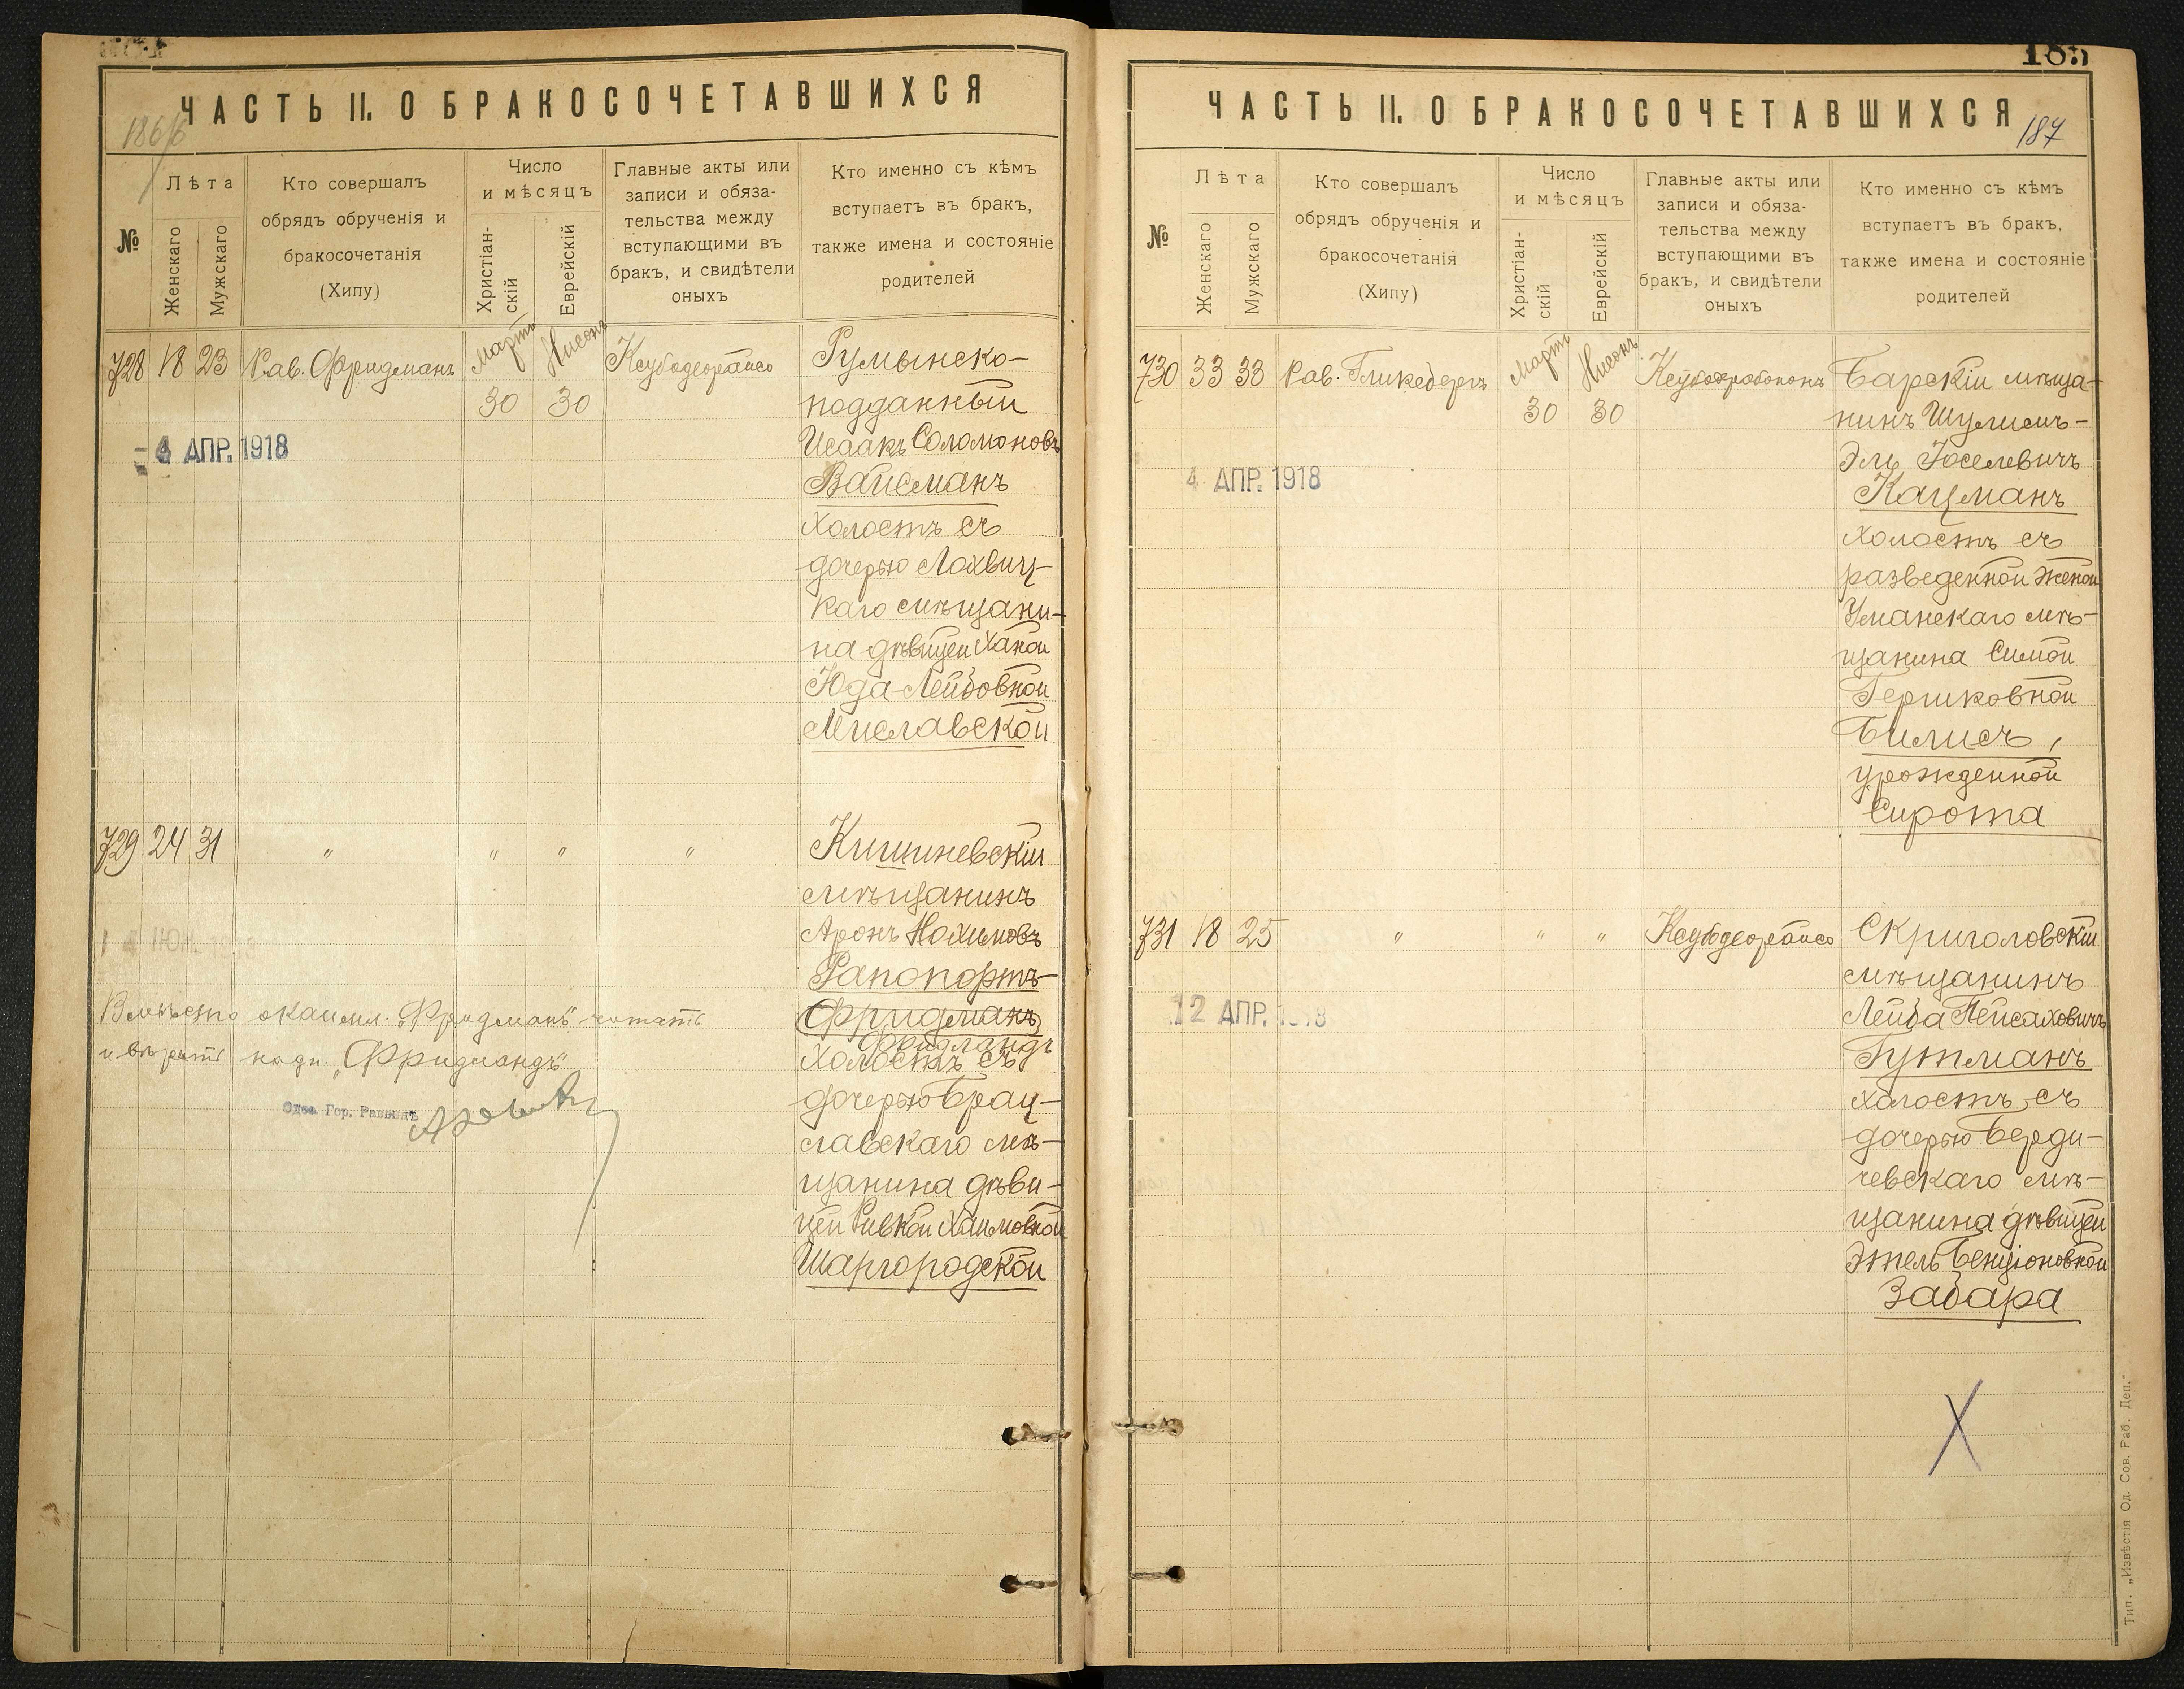 ЧАСТЬ II. О БРАКОСОЧЕТАВШИХСЯ
№
Лѣта
Женскаго
Мужскаго
Кто совершалъ
обрядъ обрученія и
бракосочетанія
(Хипу)
Число
и мѣсяцъ
Христіан-
скій
Еврейскій
Главные акты или
записи и обяза-
тельства между
вступающими въ
бракъ, и свидѣтели
оныхъ
Кто именно съ кѣмъ
вступаетъ въ бракъ,
также имена и состояніе
родителей
728 18 23 Рав. Фридманъ Мартъ 30 Нисонъ 30 Ксубодеорайсо
Румынско-
подданный
Исаакъ Соломоновъ
Вайсманъ
холостъ съ
дочерью Лохвиц-
каго мѣщани-
на дѣвицей Ханой
Юда-Лейбовной
Миславской
4 АПР. 1918
729 24 31 " " " "
Кишиневскій
мѣщанинъ
Аронъ Нохимовъ
Рапопортъ-
Фридманъ
Фридландъ
холостъ съ
дочерью Брац-
лавскаго мѣ-
щанина дѣви-
цей Ривкой Хаимовной
Шаргородской
Вмѣсто "Фридманъ" читать
и вѣрить "Фридландъ"
Одес. Гор. Раввинъ
185
ЧАСТЬ II. О БРАКОСОЧЕТАВШИХСЯ
187
№
Лѣта
Женскаго
Мужскаго
Кто совершалъ
обрядъ обрученія и
бракосочетанія
(Хипу)
Число
и мѣсяцъ
Христіан-
скій
Еврейскій
Главные акты или
записи и обяза-
тельства между
вступающими въ
бракъ, и свидѣтели
оныхъ
Кто именно съ кѣмъ
вступаетъ въ бракъ,
также имена и состояніе
родителей
730 33 33 Рав. Гликсбергъ Мартъ 30 Нисонъ 30 Ксубодрабононъ
Барскій мѣща-
нинъ Шулимъ-
Эль Іоселевичъ
Кацманъ
холостъ съ
разведенной женой
Уманскаго мѣ-
щанина Симой
Гершковной
Билисъ,
урожденной
Сирота
4 АПР. 1918
731 18 25 " " " Ксубодеорайсо
Скригаловскій
мѣщанинъ
Лейба Пейсаховичъ
Гутманъ
холостъ, съ
дочерью Берди-
чевскаго мѣ-
щанина дѣвицей
Этель Бенціоновной
Забара
12 АПР. 1918
Тип. „Извѣстія Од. Сов. Раб. Деп."